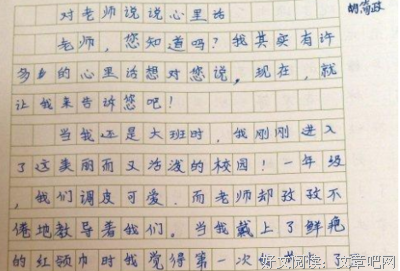 对老师说说心里话
胡简政
老师，您知道吗？我其实有许
多的心里话想对您说，现在，就
让我来告诉您吧！
当我还是大班时，我刚刚进入
了这美丽而又活泼的校园！一年级
，我们调皮可爱．而老师却孜孜不
倦地教导着我们。当我戴上了鲜艳
的红领巾时我觉得第一次
好文阅读：文章吧网